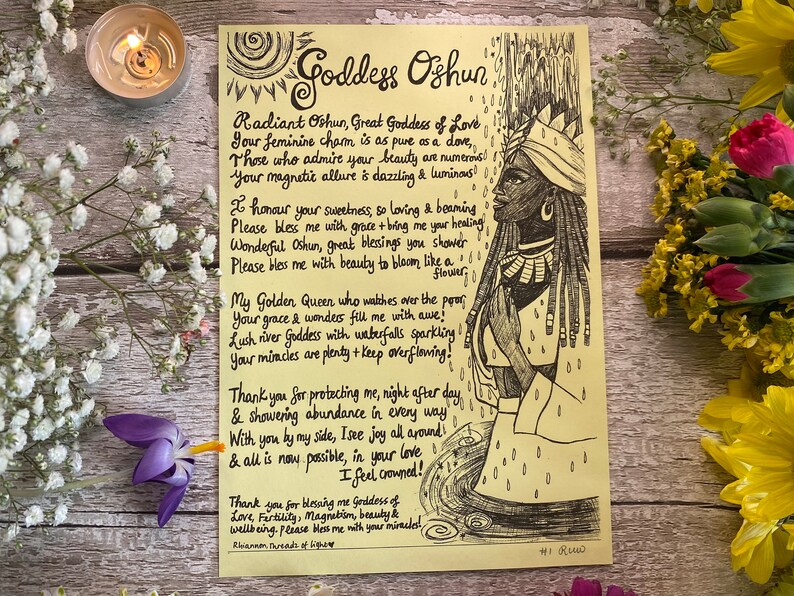 Goddess Oshun
Radiant Oshun, Great Goddess of Love
Your feminine charm is as pure as a dove,
Those who admire your beauty are numerous
Your magnetic allure is dazzling & luminous
I honour your sweetness, so loving & beaming
Please bless me with grace + bring me your healing
Wonderful Oshun, great blessings you shower
Please bless me with beauty to bloom like a
flower,
My Golden Queen who watches over the poor,
Your grace & wonders fill me with awe!
Lush river Goddess with waterfalls sparkling
Your miracles are plenty + keep overflowing!
Thank you for protecting me, night after day
& showering abundance in every way
With you by my side, I see joy all around
& all is now possible, in your love
I feel crowned!
Thank you for blessing me Goddess of
Love, Fertility, Magnetism, beauty &
wellbeing. Please bless me with your miracles!
Rhiannon. Threadz of Light♥
#1